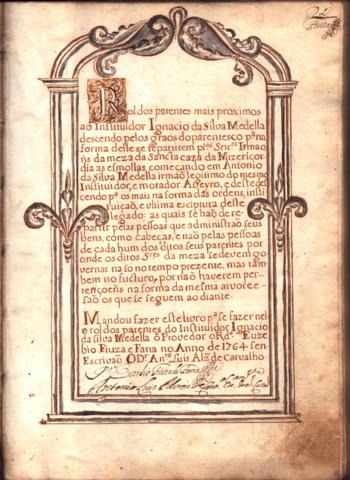 Rol dos parentes mais proximos
ao Instituidor Ignacio da Silva Medella
descendo pelos graos do parentesco pª na
forma delle se repartirem plos Snres Irmaõ
ns da meza da Sancta caza da Mizericor
dia as esmollas, começando em Antonio
da Silva Medella irmaõ legitimo do mesmo
Instituidor, e morador
cendo pª os mais na forma das ordens, insti
tuiçaõ, e ultima escriptura deste
legado: as quais se haõ de re-
partir pellas pessoas que administraõ seus
bens, como cabeças, e naõ pellas pessoas
de cada hum dos ditos seus parentes por
onde os ditos Sres da meza se devem go
vernar na só no tempo prezente, mas tam
bem no fucturo, por na ó haverem per-
tençoẽns na forma da mesma arvore e
saõ os que se seguem ao diante
Mandou fazer este livro pª se fazer nel
le o rol dos parentes do Instituidor Ignacio
da Silva Medella o Provedor o Rdo Euze
bio Fiuza e Faria no Anno de 1764 sen
Escrivaõ O Dr Anto Luis Alz de Carvalho